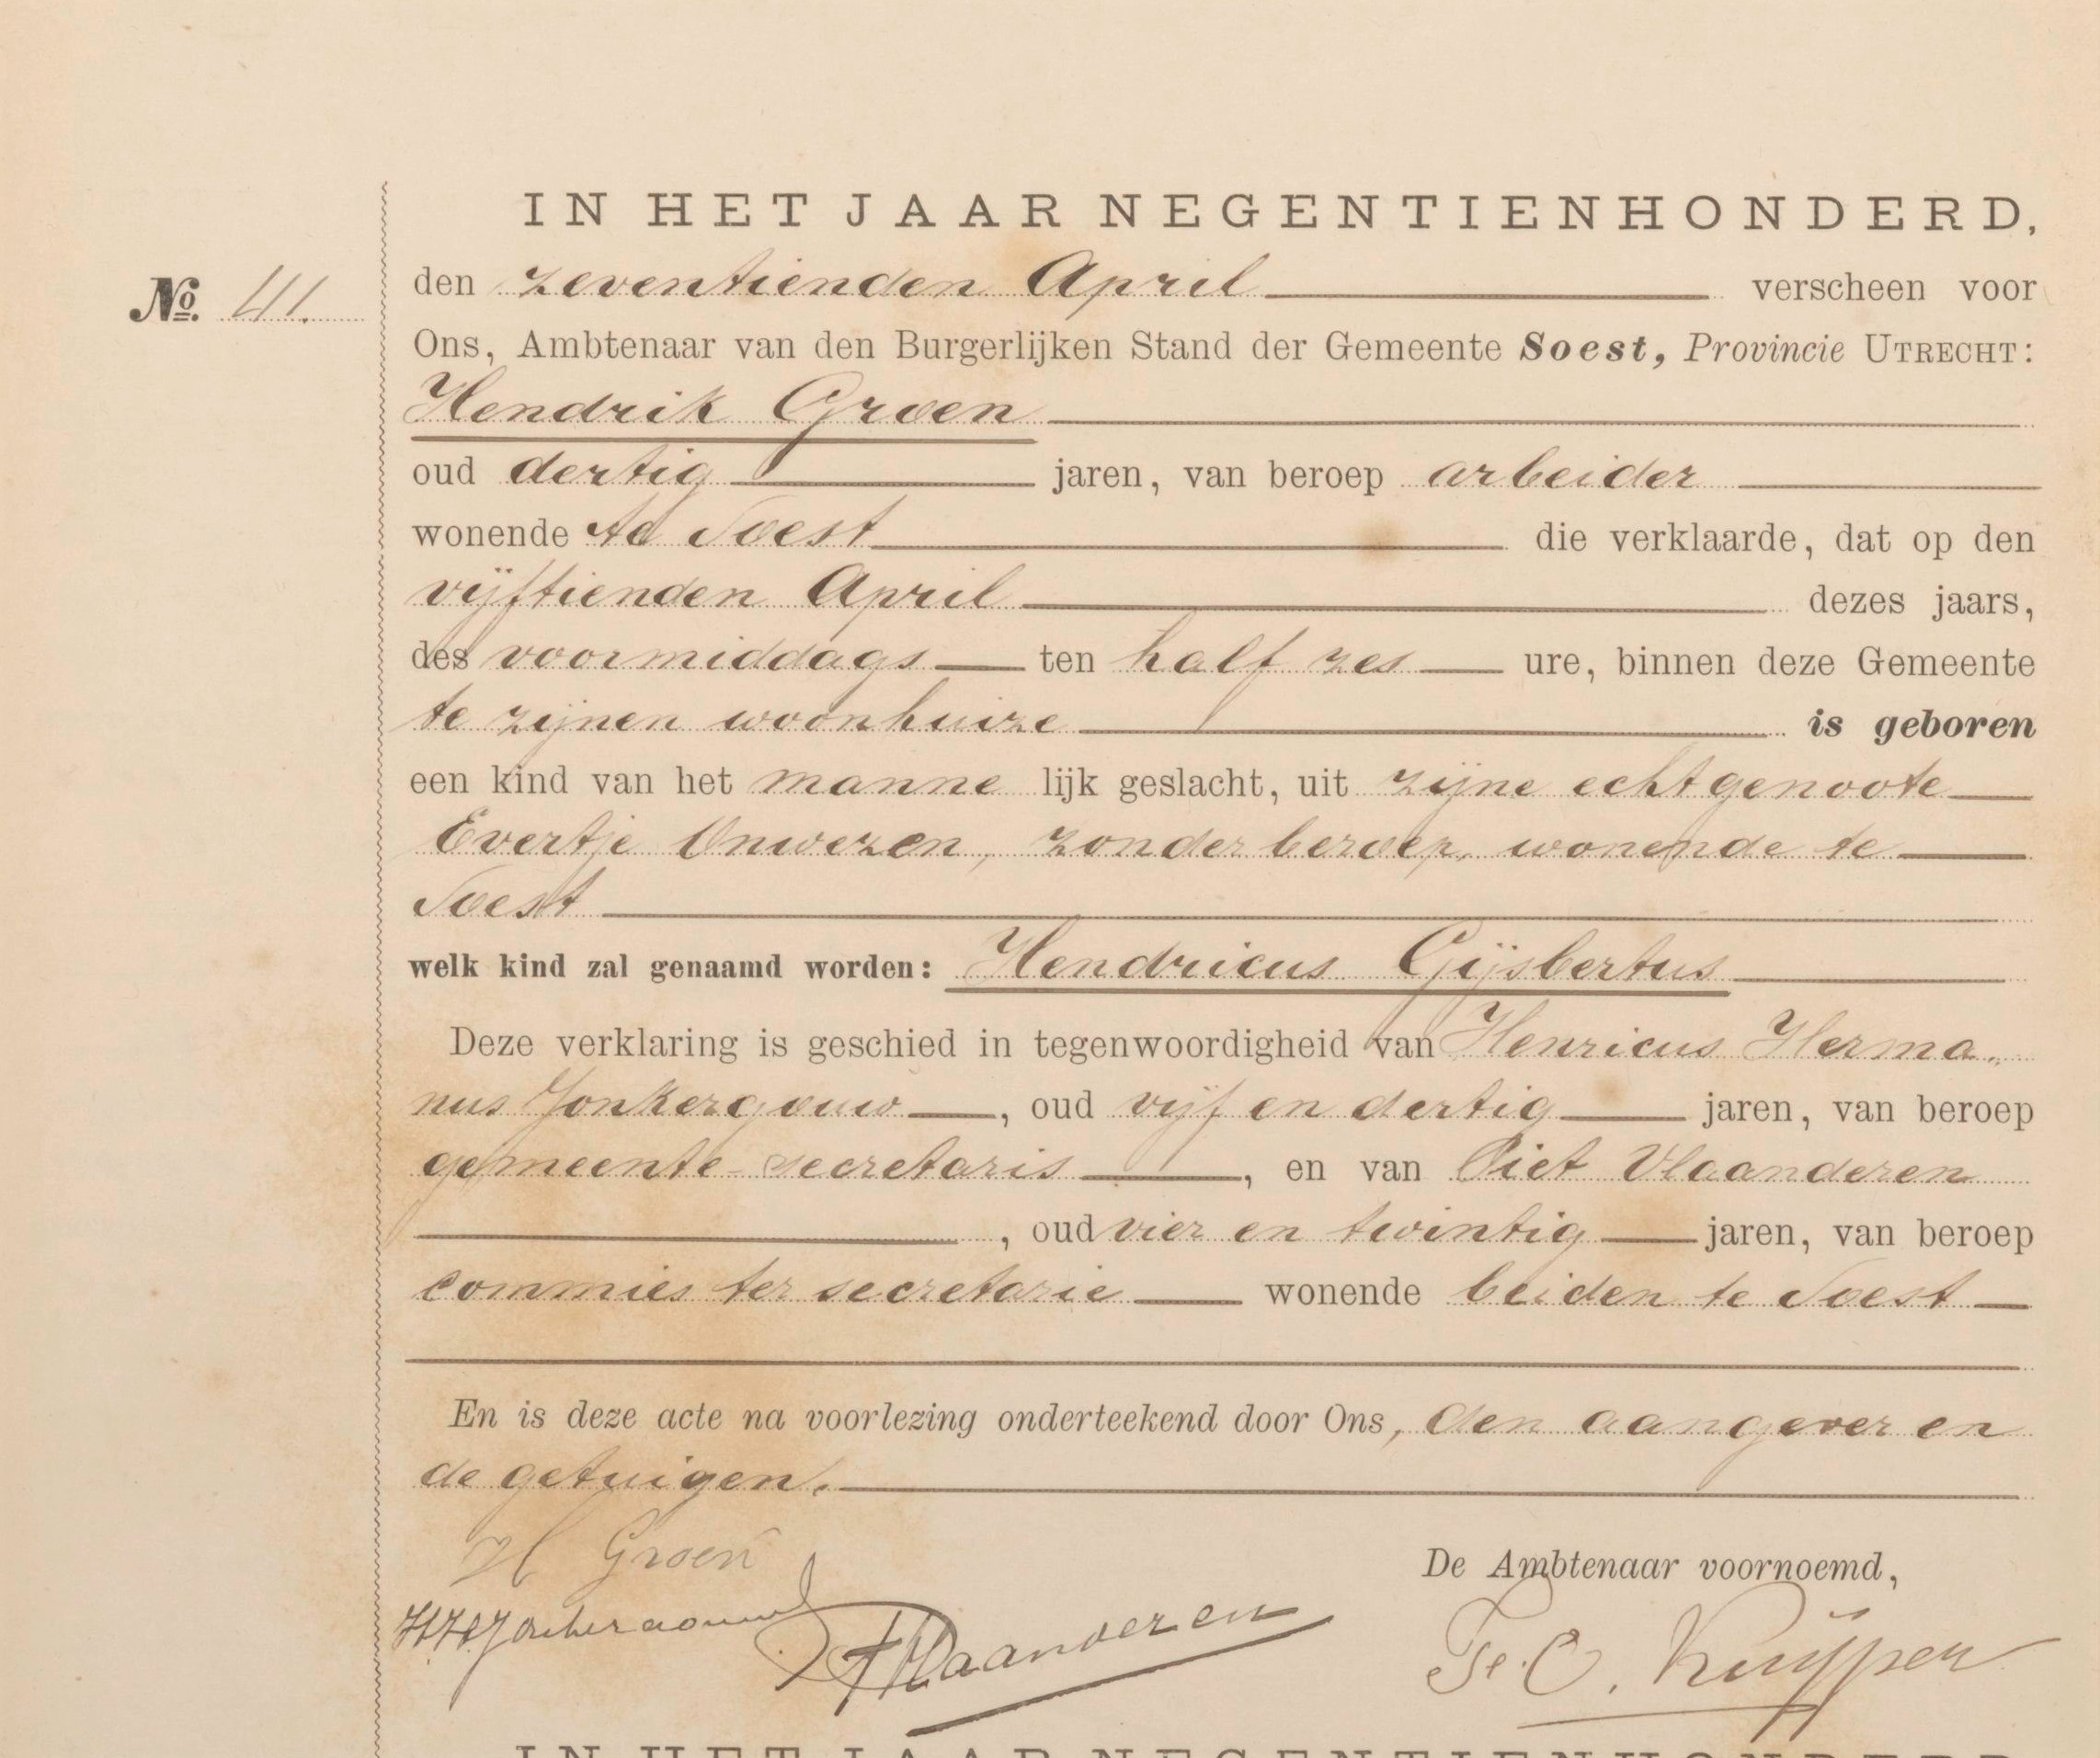 IN HET JAAR NEGENTIENHONDERD,
No. 41.
den zeventienden April verscheen voor
Ons, Ambtenaar van den Burgerlijken Stand der Gemeente Soest, Provincie UTRECHT:
Hendrik Groen
oud dertig jaren, van beroep arbeider
wonende te Soest die verklaarde, dat op den
vijftienden April dezes jaars,
des voormiddags ten half zes ure, binnen deze Gemeente
te zijnen woonhuize is geboren
een kind van het manne lijk geslacht, uit zijne echtgenoote
Evertje Onwezen, zonder beroep, wonende te
Soest
welk kind zal genaamd worden: Hendricus Gijsbertus
Deze verklaring is geschied in tegenwoordigheid van Henricus Herma-
nus Jonkergouw, oud vijf en dertig jaren, van beroep
gemeente-secretaris, en van Piet Vlaanderen
, oud vier en twintig jaren, van beroep
commies ter secretarie wonende beiden te Soest
En is deze acte na voorlezing onderteekend door Ons, den aangever en
de getuigen.
H Groen
De Ambtenaar voornoemd,
HHJonkergouw
PVlaanderen
Kuijper
IN HET JAAR NEGENTIENHONDERD